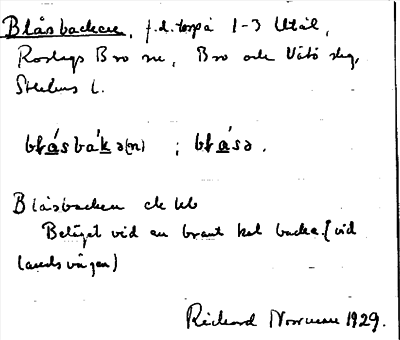 Blåsbacken, f.d. torp å 1-3 Utål,
Roslags Bro sn, Bro och Vätö skg,
Sthlms l.
blásbákə(n) ; blásə.
Blåsbacken ek kb
Beläget vid en brant kal backe. (vid
landsvägen)
Rickard Norrman 1929.